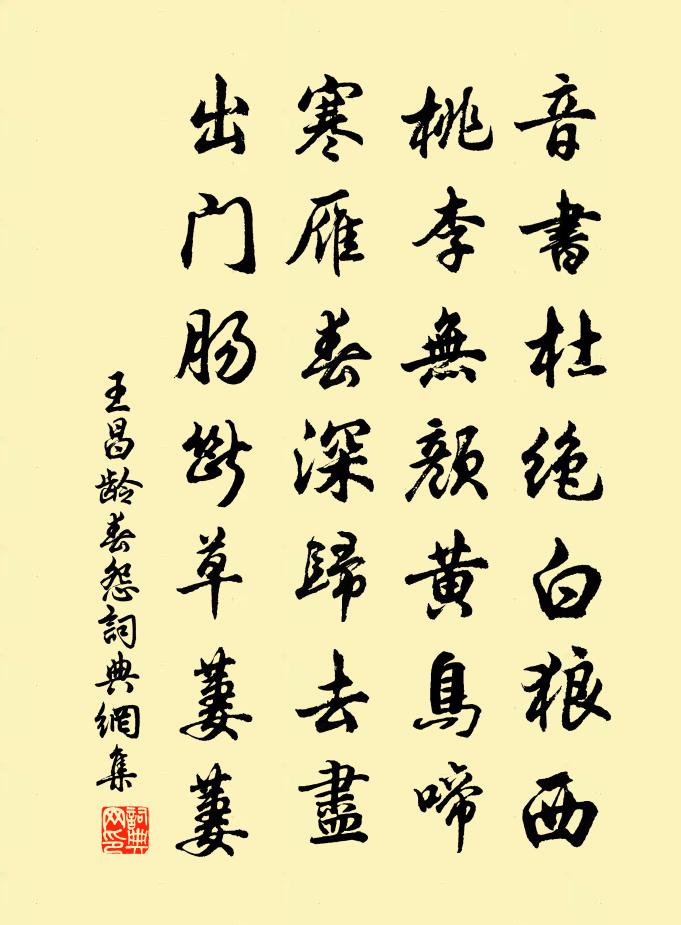 音書杜絶白狼西
桃李無顔黄鳥啼
寒雁春深歸去盡
出门肠斷草萋萋
王昌龄春怨詞典網集
詞典
网印